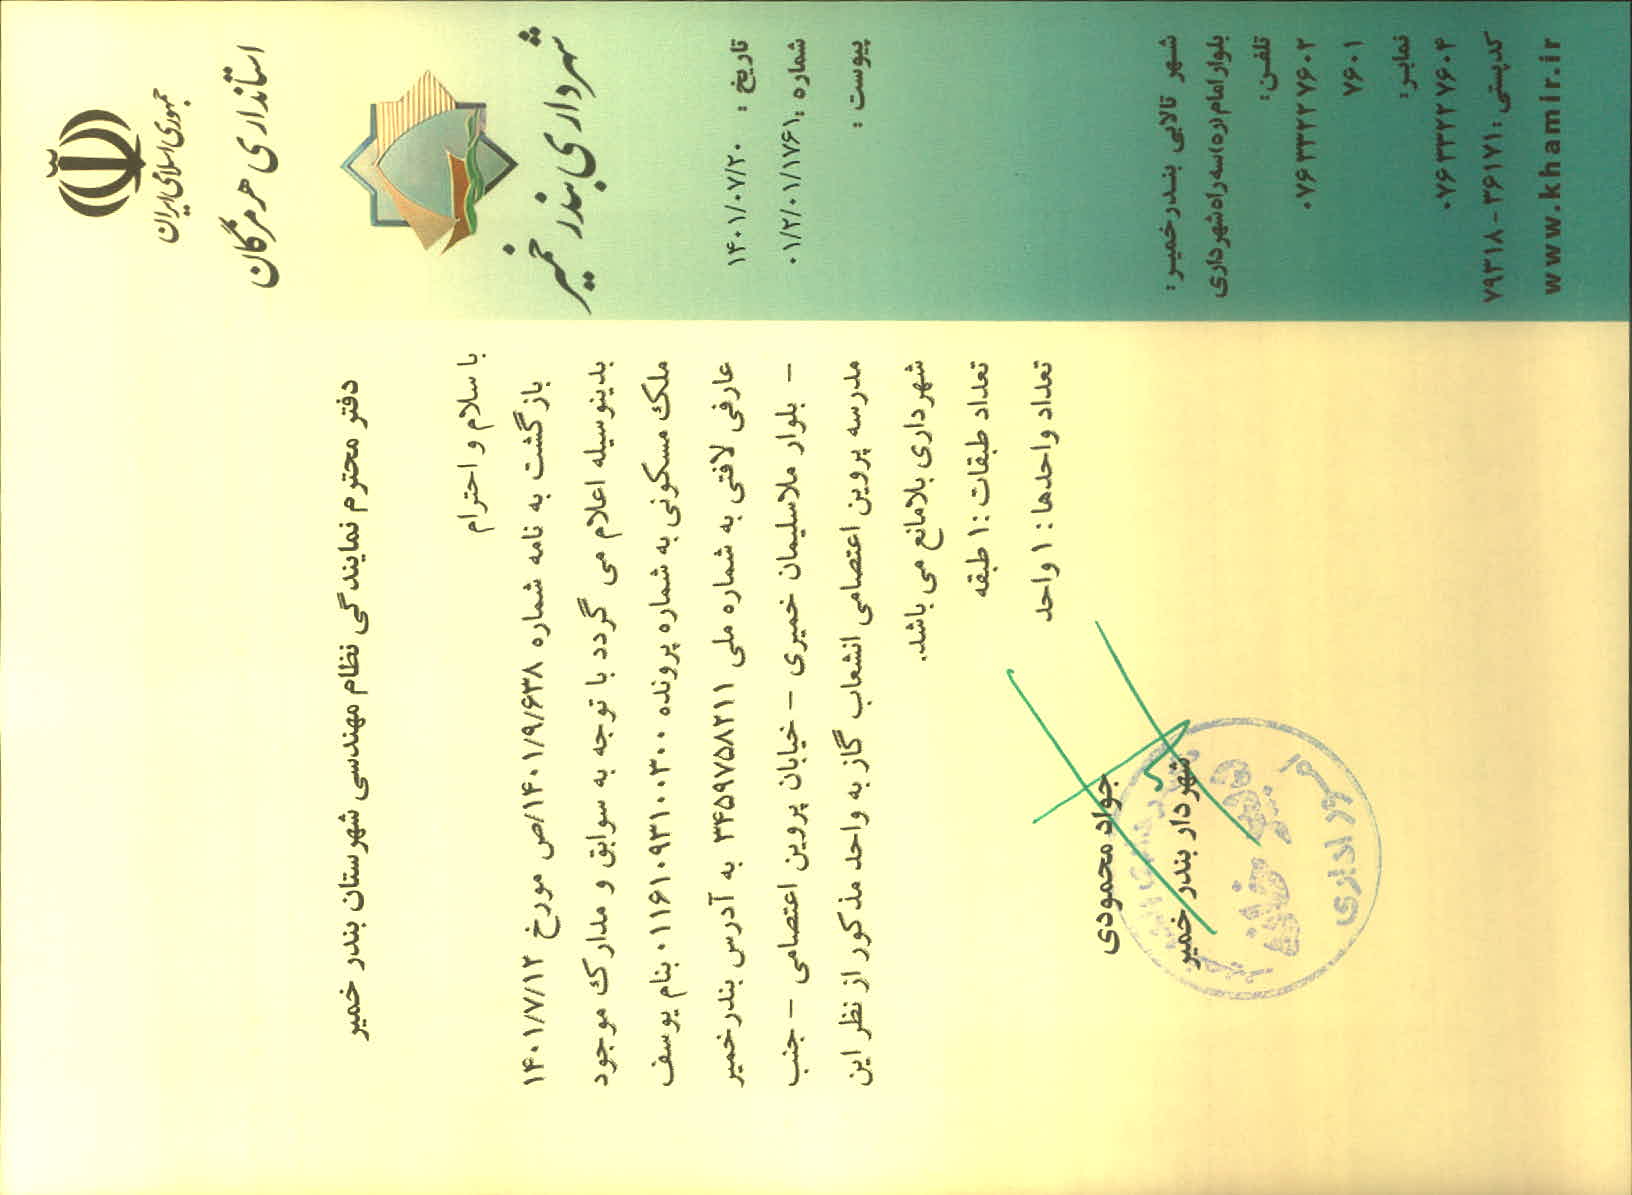 جمهوری اسلامی ایران
استانداری هرمزگان
شهرداری بندر خمیر
تاریخ : ۱۴۰۱/۰۷/۲۰
شماره : ۰۱/۲/۰۱/۱۷۶۱
پیوست :
شهر تالابی بندرخمیر:
بلوار امام (ره) سه راه شهرداری
تلفن:
۰۷۶۳۳۳۲۷۶۰۲
۷۶۰۱
نمابر:
۰۷۶۳۳۳۲۷۶۰۴
کدپستی: ۳۶۱۷۱ - ۷۹۳۱۸
www.khamir.ir
دفتر محترم نمایندگی نظام مهندسی شهرستان بندر خمیر
با سلام و احترام
بازگشت به نامه شماره ۱۴۰۱/۹/۶۳۸/ص مورخ ۱۴۰۱/۷/۱۲
بدینوسیله اعلام می گردد با توجه به سوابق و مدارک موجود
ملک مسکونی به شماره پرونده ۰۱۱۶۱۰۹۳۱۰۰۳۰۰ بنام یوسف
عارفی لافتی به شماره ملی ۳۴۵۹۷۵۸۲۱۱ به آدرس بندرخمیر
- بلوار ملاسلیمان خمیری - خیابان پروین اعتصامی - جنب
مدرسه پروین اعتصامی انشعاب گاز به واحد مذکور از نظر این
شهرداری بلامانع می باشد.
تعداد طبقات : ۱ طبقه
تعداد واحدها : ۱ واحد
جواد محمودی
شهردار بندر خمیر
امور اداری